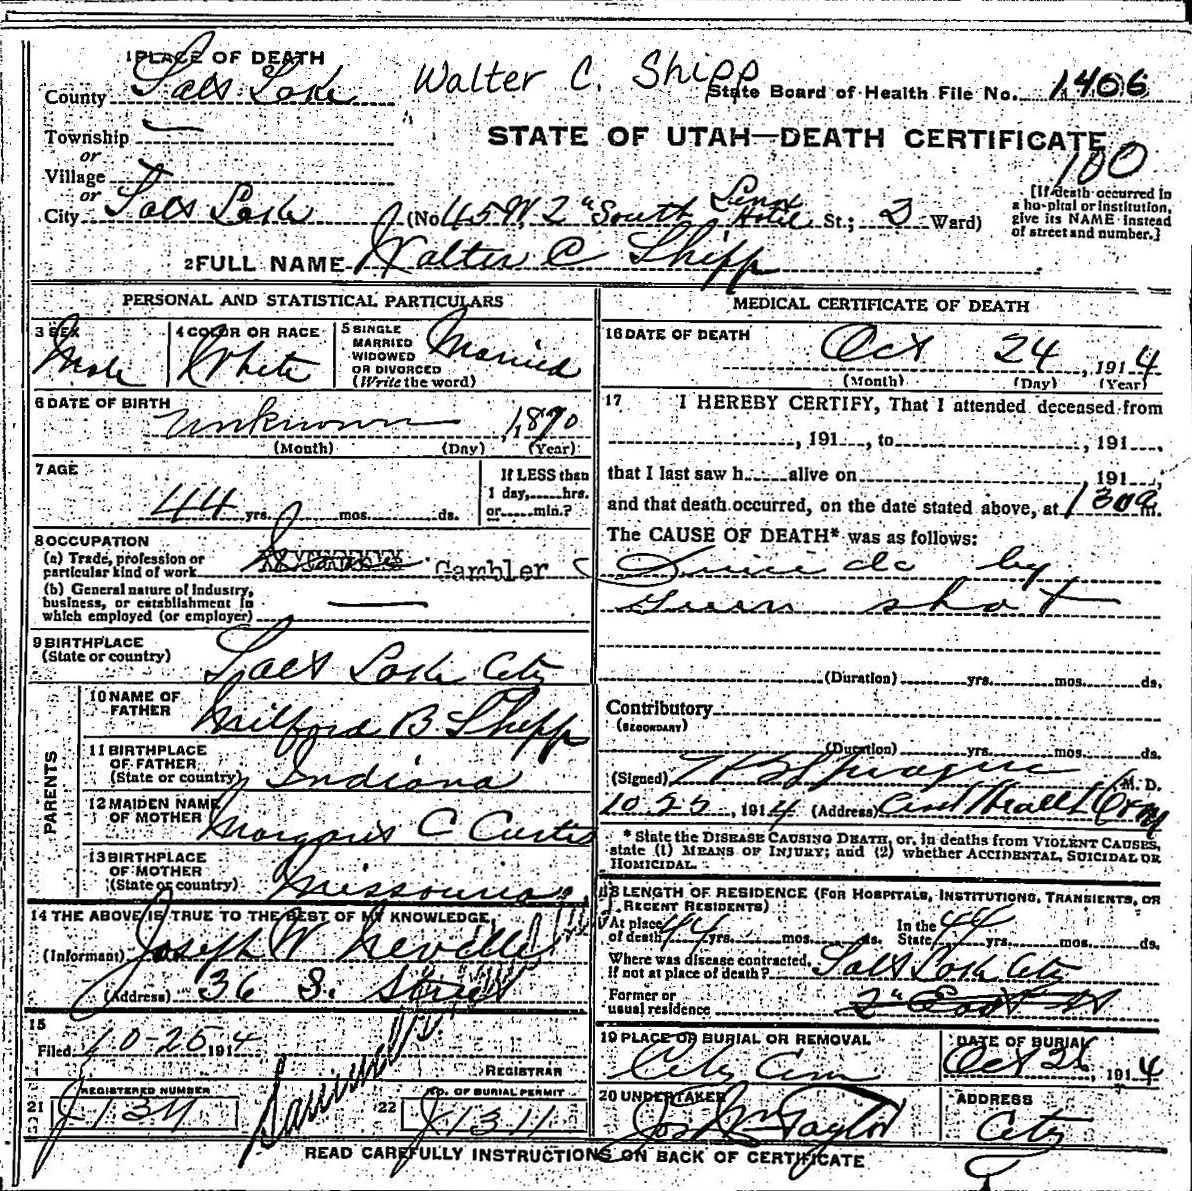 1 PLACE OF DEATH
County Salt Lake
Walter C. Shipp
State Board of Health File No. 1406
Township
or
Village
or
City Salt Lake
STATE OF UTAH—DEATH CERTIFICATE
100
(No 45 W 2" South Hotel St.; 3 Ward)
[If death occurred in
a hospital or institution,
give its NAME instead
of street and number.]
2 FULL NAME Walter C Shipp
PERSONAL AND STATISTICAL PARTICULARS
3 SEX
Male
4 COLOR OR RACE
White
5 SINGLE
MARRIED
WIDOWED
OR DIVORCED
(Write the word)
Married
6 DATE OF BIRTH
Unknown, 1870
(Month) (Day) (Year)
7 AGE
44 yrs. mos. ds.
If LESS than
1 day, hrs.
or min.?
8 OCCUPATION
(a) Trade, profession or
particular kind of work Gambler
(b) General nature of Industry,
business, or establishment in
which employed (or employer)
9 BIRTHPLACE
(State or country) Salt Lake City
PARENTS
10 NAME OF
FATHER Milford B Shipp
11 BIRTHPLACE
OF FATHER
(State or country) Indiana
12 MAIDEN NAME
OF MOTHER Margaret C Curtis
13 BIRTHPLACE
OF MOTHER
(State or country) Missouri
14 THE ABOVE IS TRUE TO THE BEST OF MY KNOWLEDGE,
(Informant) Joseph W Neville
(Address) 36 S. Street
15
Filed 10-25 1914
REGISTRAR
REGISTERED NUMBER
21 J 1311
NO. OF BURIAL PERMIT
22 J 1311
MEDICAL CERTIFICATE OF DEATH
16 DATE OF DEATH
Oct 24, 1914
(Month) (Day) (Year)
17 I HEREBY CERTIFY, That I attended deceased from
, 191 , to , 191 ,
that I last saw h alive on , 191 ,
and that death occurred, on the date stated above, at 130 a m.
The CAUSE OF DEATH* was as follows:
Suicide by
Gun shot
(Duration) yrs. mos. ds.
Contributory
(SECONDARY)
(Duration) yrs. mos. ds.
(Signed) Sprague M. D.
10 25, 1914 (Address)
* State the DISEASE CAUSING DEATH, or, in deaths from VIOLENT CAUSES,
state (1) MEANS OF INJURY; and (2) whether ACCIDENTAL, SUICIDAL OR
HOMICIDAL.
18 LENGTH OF RESIDENCE (FOR HOSPITALS, INSTITUTIONS, TRANSIENTS, OR
RECENT RESIDENTS)
At place
of death 44 yrs. mos. ds.
In the
State 44 yrs. mos. ds.
Where was disease contracted,
if not at place of death? Salt Lake City
Former or
usual residence 2" East St
19 PLACE OF BURIAL OR REMOVAL
City Cem
DATE OF BURIAL
Oct 26, 1914
20 UNDERTAKER
Jos Wm Taylor
ADDRESS
City
READ CAREFULLY INSTRUCTIONS ON BACK OF CERTIFICATE